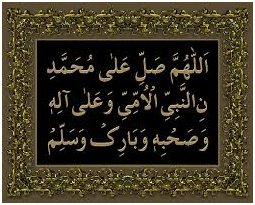 اَللّٰهُمَّ صَلِّ عَلٰى مُحَمَّدِ
نِالنَّبِيِّ الْاُمِّيِّ وَعَلٰى آلِهٖ
وَصَحْبِهٖ وَبَارِكْ وَسَلِّمْ